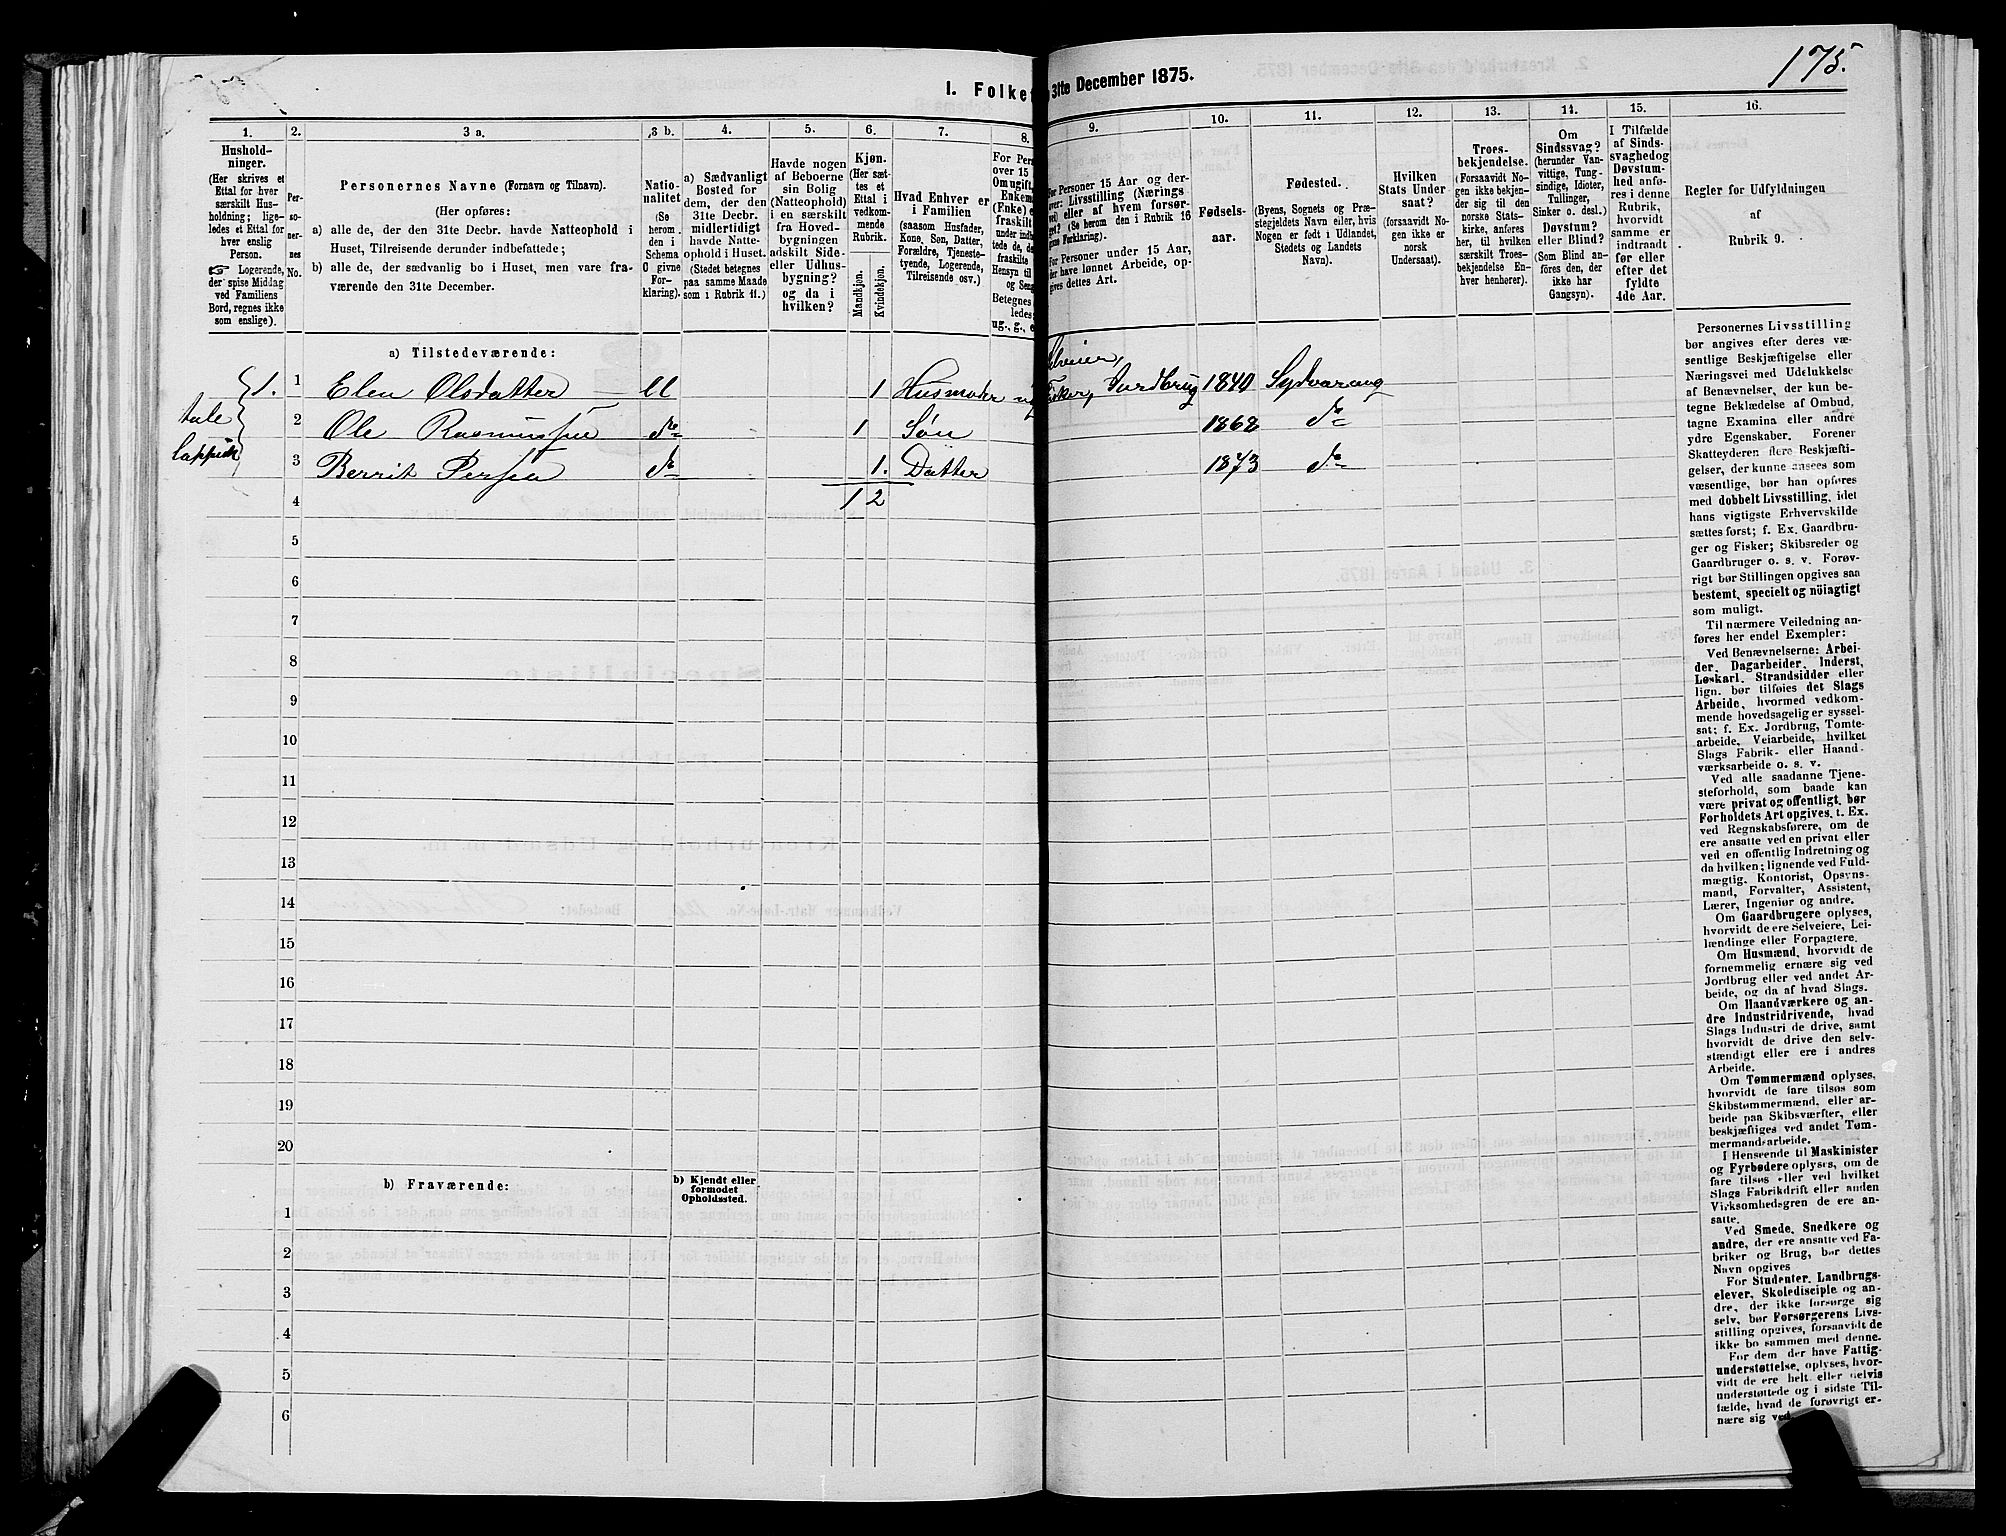 175.
I. Folket
3lte December 1875.
1. 2. 3 a. 3 b. 4. 5. 6. 7. 8. 9. 10. 11. 12. 13. 14. 15. 16.
Hushold-
ninger.
(Her skrives et
Ettal for hver
særskilt Hus-
holdning; lige-
ledes et Ettal for
hver enslig
Person.
☞ Logerende,
der spise Middag
ved Familiens
Bord, regnes ikke
som enslige).
Per-
so-
ner-
nes
No.
Personernes Navne (Fornavn og Tilnavn).
(Her opføres:
a) alle de, der den 31te Decbr. havde Natteophold i
Huset, Tilreisende derunder indbefattede;
b) alle de, der sædvanlig bo i Huset, men vare fra-
værende den 31te December.
Natio-
nalitet
(Se
herom
den i
Schema
O givne
For-
klaring).
a) Sædvanligt
Bosted for
dem, der den
31te Decbr.
midlertidigt
havde Natte-
ophold i Huset.
(Stedet betegnes
paa samme Maade
som i Rubrik 11.)
Havde nogen
af Beboerne
sin Bolig
(Natteophold)
i en særskilt
fra Hoved-
bygningen
adskilt Side-
eller Udhus-
bygning?
og da i
hvilken?
Kjøn.
(Her sæt-
tes et
Ettal i
vedkom-
mende
Rubrik.
Mandkjøn.
Kvindekjøn.
Hvad Enhver er
i Familien
(saasom Husfader,
Kone, Søn, Datter,
Forældre, Tjeneste-
tyende, Logerende,
Tilreisende osv.)
For Pers
over 15
Omugift,
Enkem
(Enke) e
fraskilt
herunder
For Personer 15 Aar og der-
over: Livsstilling (Nærings
vei) eller af hvem forsør-
get? (Se herom den i Rubrik 16
givne Forklaring).
For Personer under 15 Aar,
der have lønnet Arbeide, op-
gives dettes Art.
Fødsels-
aar.
Fødested.
(Byens, Sognets og Præ-
stegjeldets Navn eller, hvis
Nogen er født i Udlandet,
Stedets og Landets
Navn).
Hvilken
Stats Under
saat?
(forsaavidt No-
gen ikke er
norsk
Undersaat).
Troes-
bekjendelse.
(Forsaavidt No-
gen ikke bekjen-
der sig til den
norske Stats-
kirke, anføres
her, til hvilken
særskilt Troes-
bekjendelse En-
hver henhører).
Om
Sindssvag?
(herunder Van-
vittige, Tung-
sindige, Idioter,
Tullinger,
Sinker o. desl.)
Døvstum?
eller Blind?
(Som Blind an-
føres den, der
ikke har
Gangsyn).
I Tilfælde
af Sinds-
svaghedog
Døvstum-
hed anfø-
res i denne
Rubrik,
hvorvidt
samme er
indtraadt
før eller
efter det
fyldte
4de Aar.
Regler for Udfyldningen
af
Rubrik 9.
a) Tilstedeværende:
1. 1 Elen Olsdatter 1 Husmoder og Fisker, Jordbrug 1840 Sydvarang
tale 2 Ole Rasmussen do 1 Søn 1868 do
lappisk 3 Berrit Persen do 1. Datter 1873 do
4 1 2
5
6
7
8
9
10
11
12
13
14
15
16
17
18
19
20
b) Fraværende:
b) Kjendt eller
formodet
Opholdssted.
1
2
3
4
5
6
Personernes Livsstilling
bør angives efter deres væ-
sentlige Beskjæftigelse eller
Næringsvei med Udelukkelse
af Benævnelser, der kun be-
tegne Beklædelse af Ombud,
tagne Examina eller andre
ydre Egenskaber. Forener
Skatteyderen flere Beskjæfti-
gelser, der kunne ansees som
væsentlige, bør han opføres
med dobbelt Livsstilling, idet
hans vigtigste Erhvervskilde
sættes først; f. Ex. Gaardbru-
ger og Fisker; Skibsreder og
Gaardbruger o. s. v. Forøv-
rigt bør Stillingen opgives saa
bestemt, specielt og nöiagtigt
som muligt.
Til nærmere Veiledning an-
føres her endel Exempler:
Ved Benævnelserne: Arbei-
der, Dagarbeider, Inderst,
Løskarl, Strandsidder eller
lign. bør tilføies det Slags
Arbeide, hvormed vedkom-
mende hovedsagelig er syssel-
sat; f. Ex. Jordbrug, Tomte-
arbeide, Veiarbeide, hvilket
Slags Fabrik- eller Haand-
værksarbeide o. s. v.
Ved alle saadanne Tjene-
steforhold, som baade kan
være privat og offentligt, bør
Forholdets Art opgives, t. Ex.
ved Regnskabsførere, om de
ere ansatte ved en privat eller
ved en offentlig Indretning og
da hvilken; lignende ved Fuld-
mægtig, Kontorist, Opsyns-
mand, Forvalter, Assistent,
Lærer, Ingeniør og andre.
Om Gaardbrugere oplyses,
hvorvidt de ere Selveiere, Lei-
lændinge eller Forpagtere.
Om Husmænd, hvorvidt de
fornemmelig ernære sig ved
Jordbrug eller ved andet Ar-
beide, og da af hvad Slags.
Om Haandværkere og an-
dre Industridrivende, hvad
Slags Industri de drive, samt
hvorvidt de drive den selv-
stændigt eller ere i andres
Arbeide.
Om Tømmermænd oplyses,
hvorvidt de fare tilsøs som
Skibstømmermænd, eller ar-
beide paa Skibsværfter, eller
beskjæftiges ved andet Tøm-
mermandsarbeide.
I Henseende til Maskinister
og Fyrbødere oplyses, om de
fare tilsøs eller ved hvilket
Slags Fabrikdrift eller anden
Virksomhedsgren de ere an-
satte.
Ved Smede, Snedkere og
andre, der ere ansatte ved Fa-
briker og Brug, bør dettes
Navn opgives
For Studenter, Landbrugs-
elever, Skoledisciple og an-
dre, der ikke forsørge sig
selv, bør Forsørgerens Livs-
stilling opgives, forsaavidt de
ikke bo sammen med denne.
For dem, der have Fattig-
understøttelse, oplyses, hvor-
vidt de ere helt eller delvis
understøttede og i sidste Til-
fælde, hvad de forøvrigt er-
nære sig ved.